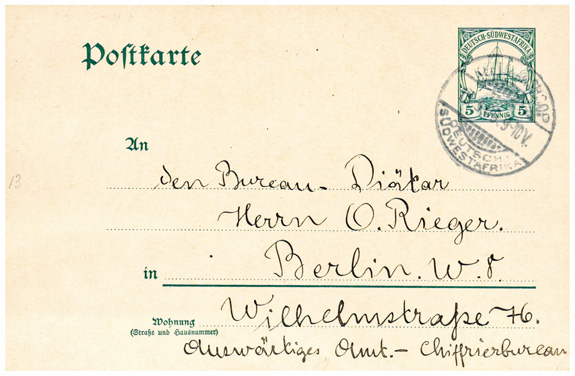 Postkarte
DEUTSCH-SÜDWESTAFRIKA
5 PFENNIG 5
9-10V.
DEUTSCH-
SÜDWESTAFRIKA
An
den Bureau-Diätar
Herrn O. Rieger.
in Berlin. W. 8.
Wohnung
(Straße und Hausnummer)
Wilhelmstraße 76.
Auswärtiges Amt.- Chiffrierbureau
13